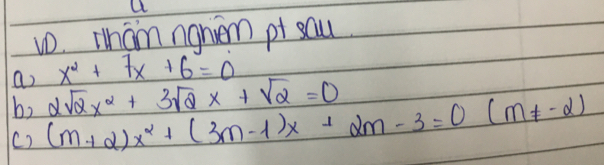 VD. Nhẩm nghiệm pt sau
a, x² + 7x + 6 = 0
b, 2√2x² + 3√2x + √2 = 0
c, (m+2)x² + (3m-1)x + 2m-3=0 (m≠-2)